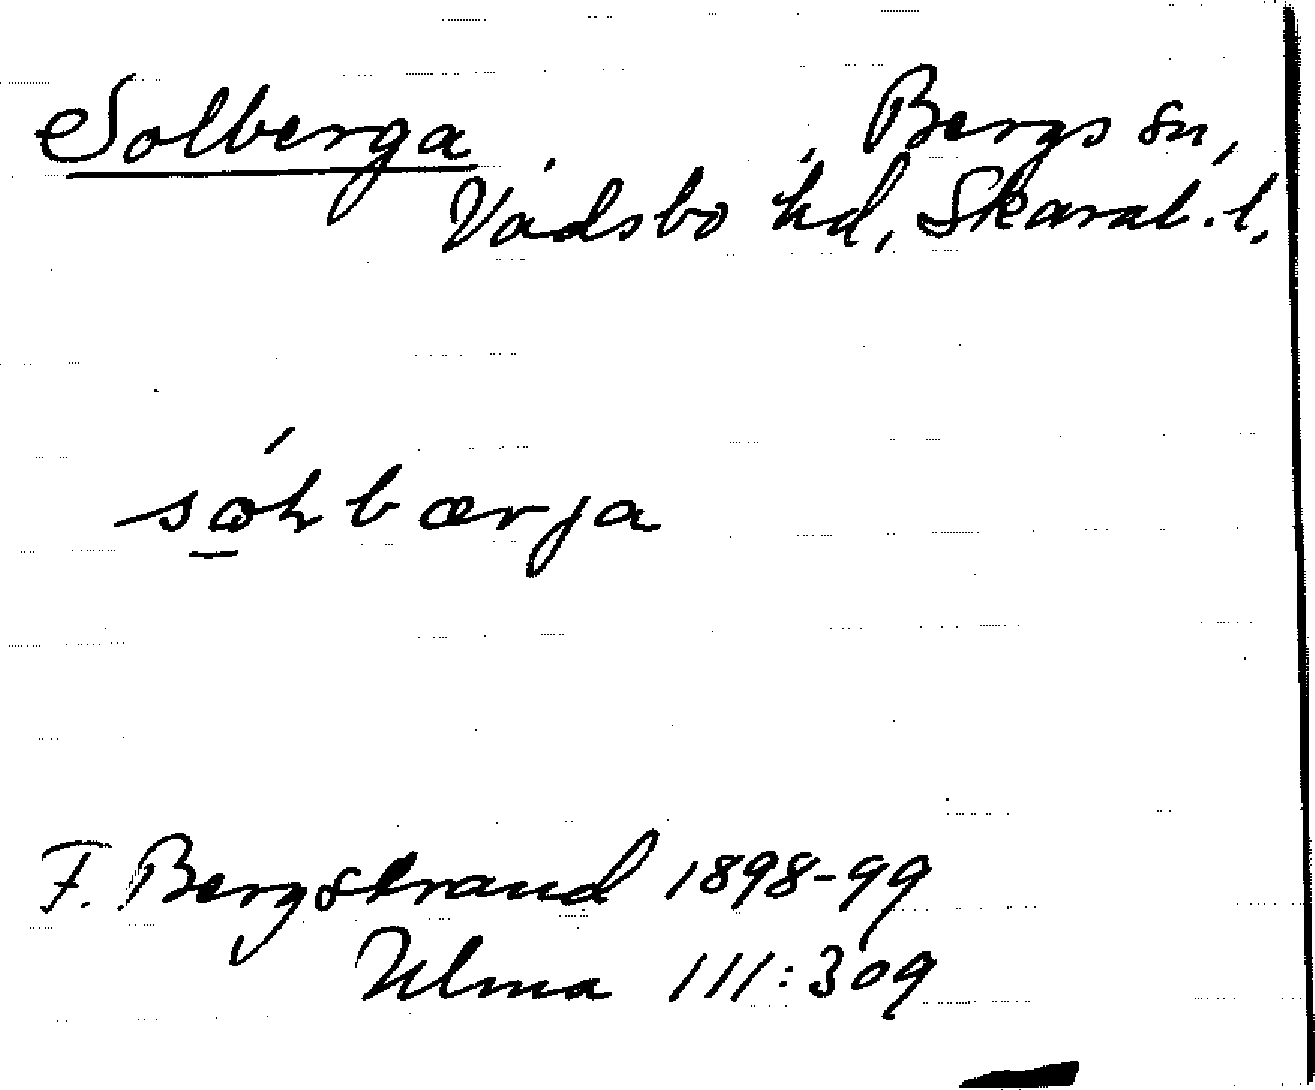 Solberga, Bergs sn,
Vadsbo hd, Skarab. l.
sώhbærja
F. Bergstrand 1898-99
Ulma 111:309